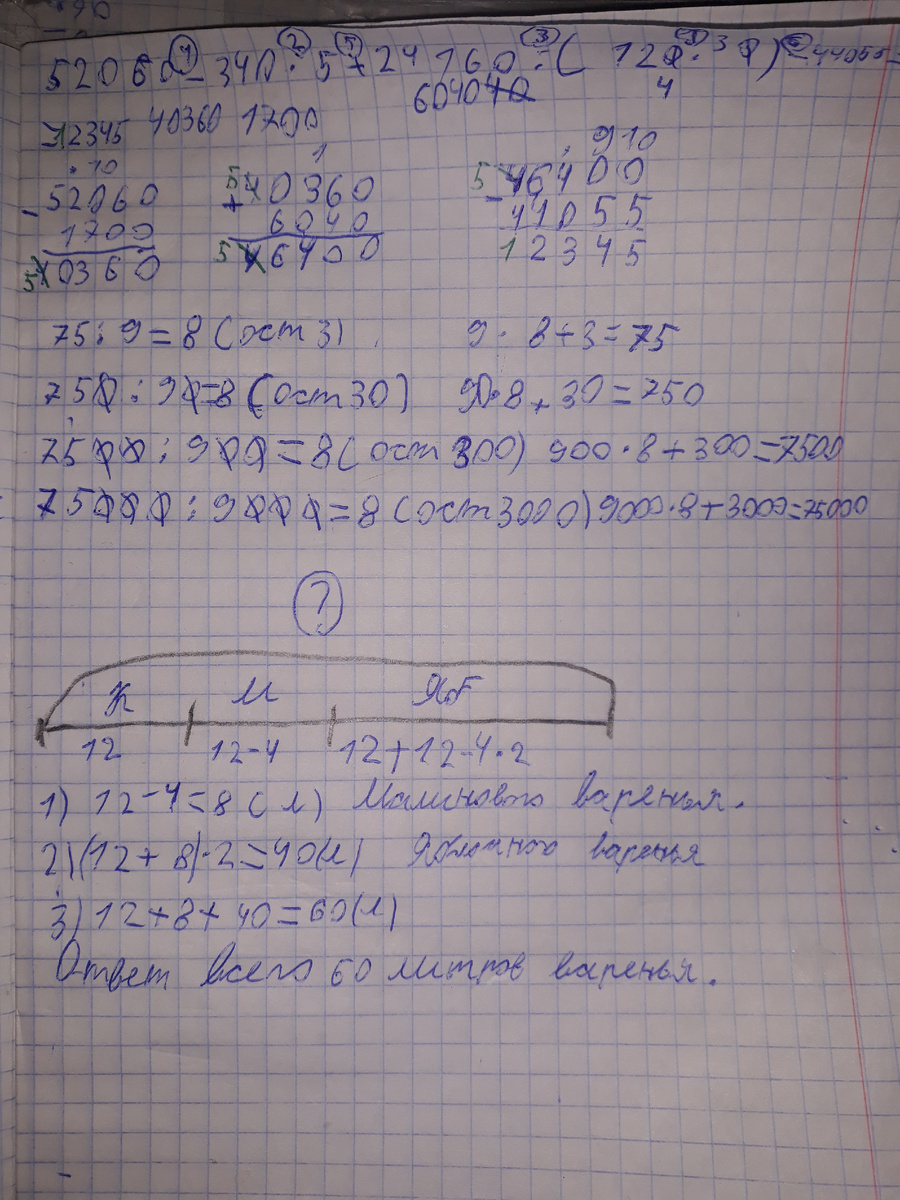 52060 - 340 · 5 + 24 160 : ( 120 : 30 ) - 44055 =
604040 4
=12345 40360 1700
- 52060 + 40360 - 46400
1700 6040 41055
50360 56400 12345
75 : 9 = 8 (ост 3) 9 · 8 + 3 = 75
750 : 90 = 8 (ост 30) 90 · 8 + 30 = 750
7500 : 900 = 8 (ост 300) 900 · 8 + 300 = 7500
75000 : 9000 = 8 (ост 3000) 9000 · 8 + 3000 = 75000
?
К М Яб
12 12-4 12+12-4·2
1) 12-4=8 (л) Малинового варенья.
2) (12+8)·2=40(л) Яблочного варенья
3) 12+8+40=60(л)
Ответ всего 60 литров варенья.